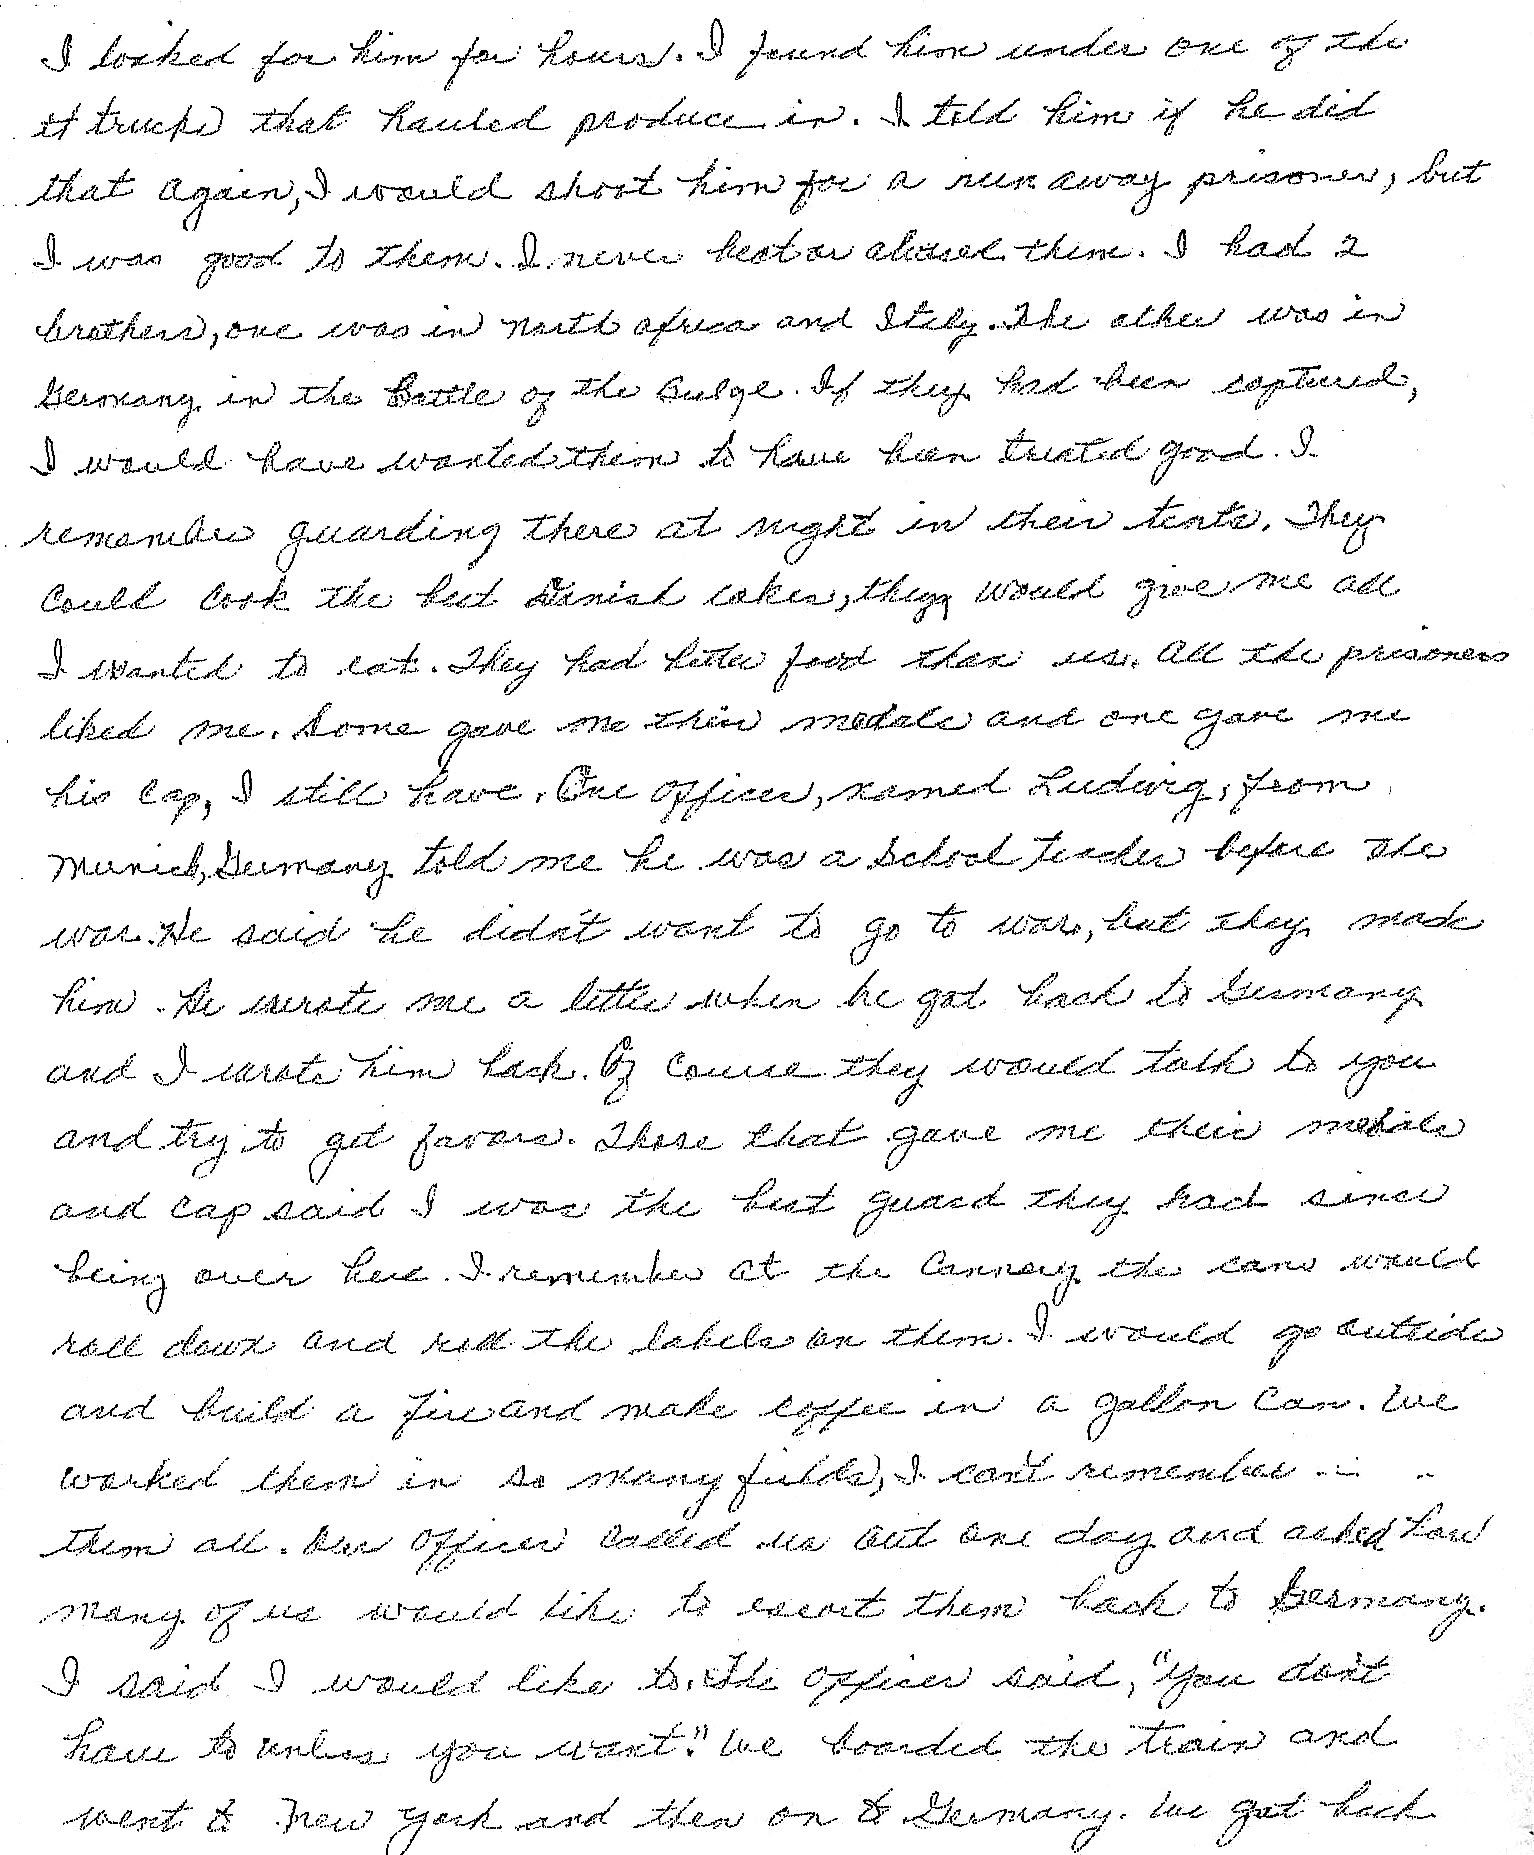 I looked for him for hours. I found him under one of the
trucks that hauled produce in. I told him if he did
that again, I would shoot him for a run away prisoner, but
I was good to them. I never beat or abused them. I had 2
brothers, one was in North Africa and Italy. The other was in
Germany in the Battle of the Bulge. If they had been captured,
I would have wanted them to have been treated good. I
remember guarding there at night in their tents. They
could cook the best Danish cakes, they would give me all
I wanted to eat. They had better food than us. All the prisoners
liked me. Some gave me their medals and one gave me
his cap, I still have. One officer, named Ludwig, from
Munich, Germany told me he was a school teacher before the
war. He said he didn't want to go to war, but they made
him. He wrote me a letter when he got back to Germany
and I wrote him back. Of course they would talk to you
and try to get favors. Those that gave me their medals
and cap said I was the best guard they had since
being over here. I remember at the Cannery the cans would
roll down and roll the labels on them. I would go outside
and build a fire and make coffee in a gallon can. We
worked them in so many fields, I can't remember
them all. Our officer called us out one day and asked how
many of us would like to escort them back to Germany.
I said I would like to. The officer said, "You don't
have to unless you want." We boarded the train and
went to New York and then on to Germany. We got back